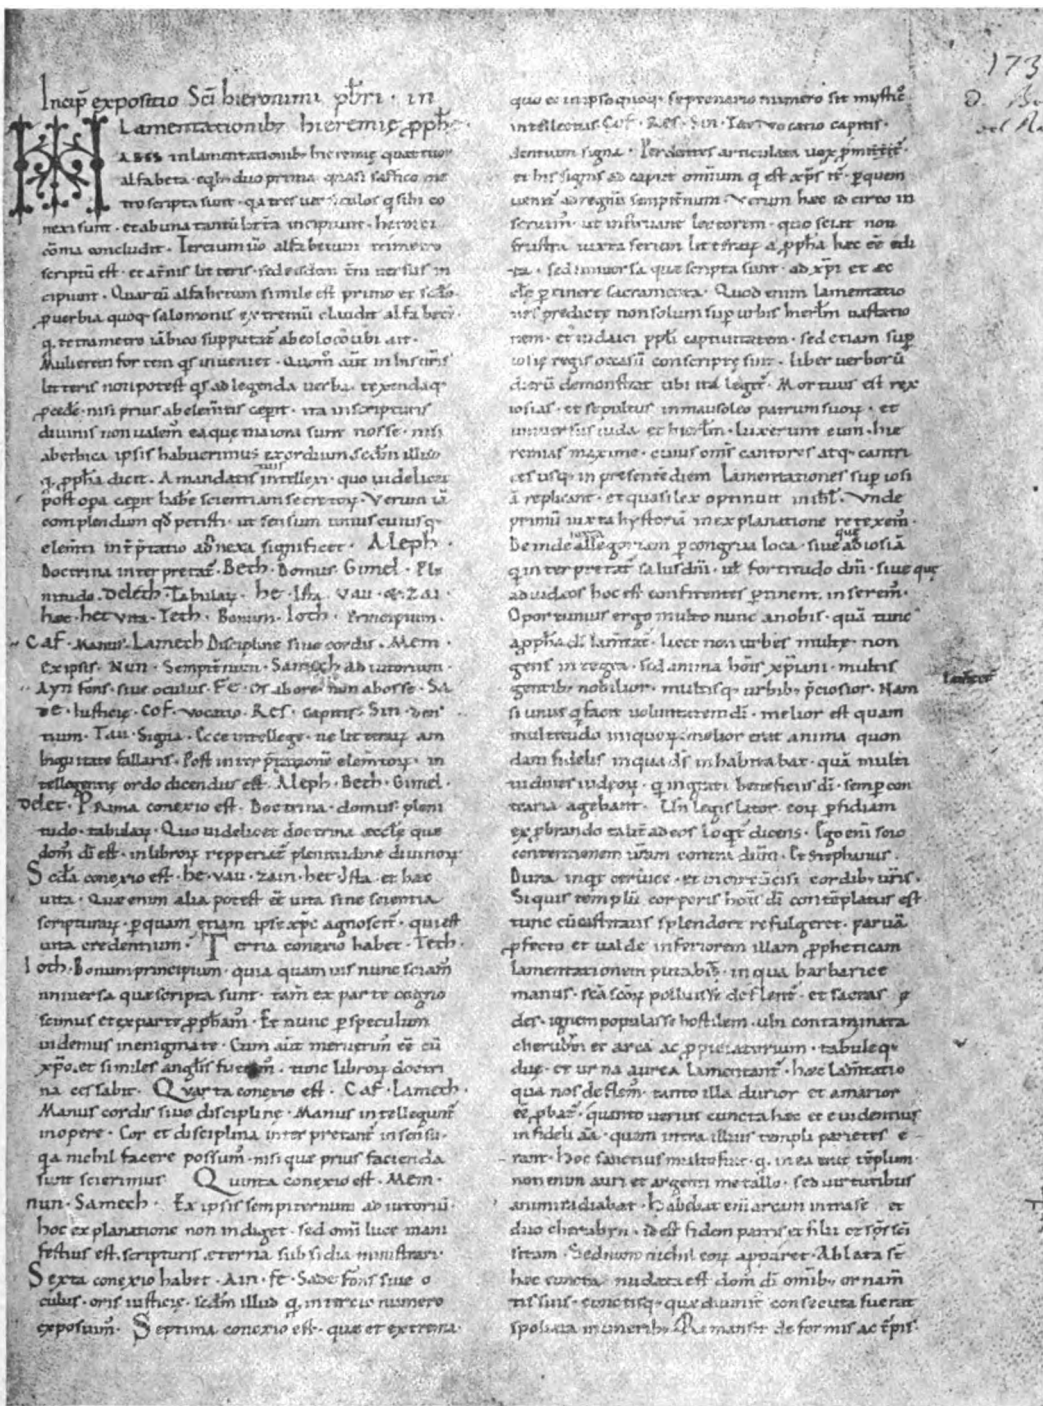 Incip expositio Sci hieronimi pbri · in
Lamentationib; hieremię pphę ·
in lamentationib; hieremię quattuor
alfabeta · eqb; duo prima quasi saffico me
tro scripta sunt · qa tres versiculos q sibi co
nexi sunt · et ab una tantū littera incipiunt · heroici
cōma concludit · Tercium ūo alfabetum trimetro
scriptū est · et a ternis litteris · sed eisdem tni versus in
cipiunt · Quartū alfabetum simile est primo et scdo ·
puerbia quoq· salomonis extremū claudit alfabetū ·
q tetrametro iābico supputat ab eo loco ubi ait ·
Mulierem fortem qs inveniet · Quom aūt in nostris
litteris non potest qs ad legenda verba texendaq·
pcede · nisi prius ab elemtis cepit · ita in scripturis
divinis non valem ea que maiora sunt nosse · nisi
ab ethica ipsis habuerimus exordium scdm illud
q ppha dicit · A mandatis tuis intellexi · quo videlicet
post opa cepit habe scientiam secretoꝝ · Verum iā
complendum qd petisti · ut sensum unius cuiusq·
elemti intpratio adnexa significet · Aleph ·
Doctrina interpretat · Beth · Domus · Gimel · Ple
nitudo · Deleth · Tabulaꝝ · he · Ista · vau · & · Zai ·
hęc · het vita · Teth · Bonum · Ioth · Principium ·
Caf · Manus · Lamech Discipline sive cordis · Mem ·
ex ipsis · Nun · Sempitnum · Samech adiutorium ·
Ayn fons · sive oculus · Fe · os ab ore · non ab osse · Sa
de · Iusticię · Cof · vocatio · Res · capitis · Sin · den
tium · Tau · Signa · Ecce intellege · ne litteraꝝ am
biguitate fallaris · Post interptationē elemtoꝝ · in
tellegentię ordo dicendus est · Aleph · Beth · Gimel ·
Delet · Prima conexio est · Doctrina · domus · pleni
tudo · tabulaꝝ · Quo videlicet doctrina ęcclę que
dom di est · in libroꝝ repperiat plenitudine divinoꝝ
Scda conexio est · he · vau · zain · het · Ista · et hęc
vita · Quę enim alia potest ee vita sine scientia
scripturaꝝ · p quam etiam ipse xpc agnoscit · qui est
vita credentium · Tertia conexio habet · Teth ·
Ioth · Bonum principium · quia quamvis nunc sciam
universa quę scripta sunt · tam ex parte cogno
scimus et ex parte ppham · Et nunc p speculum
videmus in enigmate · Cum aūt meruerim ee cū
xpo · et similes anglis fuerim · tunc libroꝝ doctri
na cessabit · Quarta conexio est · Caf · Lamech ·
Manus cordis sive discipline · Manus intellegunt
in opere · Cor et disciplina interpretant in sensu ·
qa nichil facere possum · nisi que prius facienda
sunt scierimus Quinta conexio est · Mem ·
nun · Samech · Ex ipsis sempiternum adiutoriū ·
hoc explanatione non indiget · sed omi luce mani
festius est · scripturis ęterna subsidia ministrari ·
Sexta conexio habet · Ain · fe · Sade · fons sive o
culus · oris iusticię · scdm illud q in tercio numero
exposuim · Septima conexio est · que et extrema ·
quo et in ipso quoq· septenario numero sit mystic
intellectus · Cof · Res · Sin · Tau · vocatio capitis ·
dentium signa · Per dentes articulata vox pmittit ·
et his signis ad caput omnium q est xps · p quem
venit ad regnū sempitnum · Verum hęc idcirco in
seruim · ut instruant lectorem · quo sciat non
frustra iuxta seriem litteraꝝ a ppha hęc ee edi
ta · sed universa que scripta sunt · ad xpi et ęc
clę ptinere sacramenta · Quod enim lamentatio
nes predictę non solum sup urbis hierlm vastatio
nem · et iudaici ppli captivitatem · sed etiam sup
iosię regis occasū conscriptę sint · liber verborū
dierū demonstrat ubi ita legit · Mortuus est rex
iosias · et sepultus in mausoleo patrum suoꝝ · et
universus iuda et hierlm · luxerunt eum · hie
remias maxime · cuius oms cantores atq· cantri
ces usq· in presentē diem Lamentationes sup iosi
ā replicant · et quasi lex optinuit in isrl · Unde
primū iuxta hystoriā in explanatione retexem ·
Deinde allegoriam p congrua loca · sive ad iosiā
q interpretat salus dni · vel fortitudo dni · sive que
ad iudeos hoc est confitentes ptinent · inserem ·
Oportunius ergo multo nunc a nobis · quā tunc
a ppha di lamtat · licet non urbes multę · non
gens integra · sed anima hois xpiani · multis
gentib; nobilior · multisq· urbib; pciosior · Nam
si unus q facit voluntatem di · melior est quam
multitudo iniquoꝝ · melior erat anima quon
dam fidelis in qua ds inhabitabat · quā multi
tudines iudeoꝝ · q ingrati beneficiis di · semp con
traria agebant · Un legislator eoꝝ pfidiam
exprobrando talit ad eos loqt dicens · Ego eni scio
contentionem vram contra dnm · Et stephanus ·
Dura inqt cervice · et incircūcisi cordib; vris ·
Si quis templū corporis hois di contēplatus est ·
tunc cū castitatis splendore refulgeret · parvā
pfecto et valde inferiorem illam ppheticam
lamentationem putabit · in qua barbaricę
manus · sca scoꝝ polluisse deflent · et sacras ę
des · ignem populasse hostilem · ubi contaminata
cherubin et arca ac ppiciatorium · tabuleq·
duę · et urna aurea lamentant · hęc lamtatio
qua nos deflem · tanto illa durior et amarior
ee pbat · quanto verius cuncta hęc et evidentius
in fideli aīa · quam intra illius templi parietes e
rant · hoc sanctius multo fuit · q in ea erat tēplum ·
non enim auri et argenti metallo · sed virtutibus
animi radiabat · habebat eni arcam intra se · et
duo cherubyn · id est fidem patris et filii et sps sci
sitam · Sed nunc nichil eoꝝ apparet · Ablata st
hęc cuncta · nudata est dom di omib; ornam
tis suis · cunctisq· que divinit consecuta fuerat
spoliata munerib; Remansit deformis ac tpis ·
173